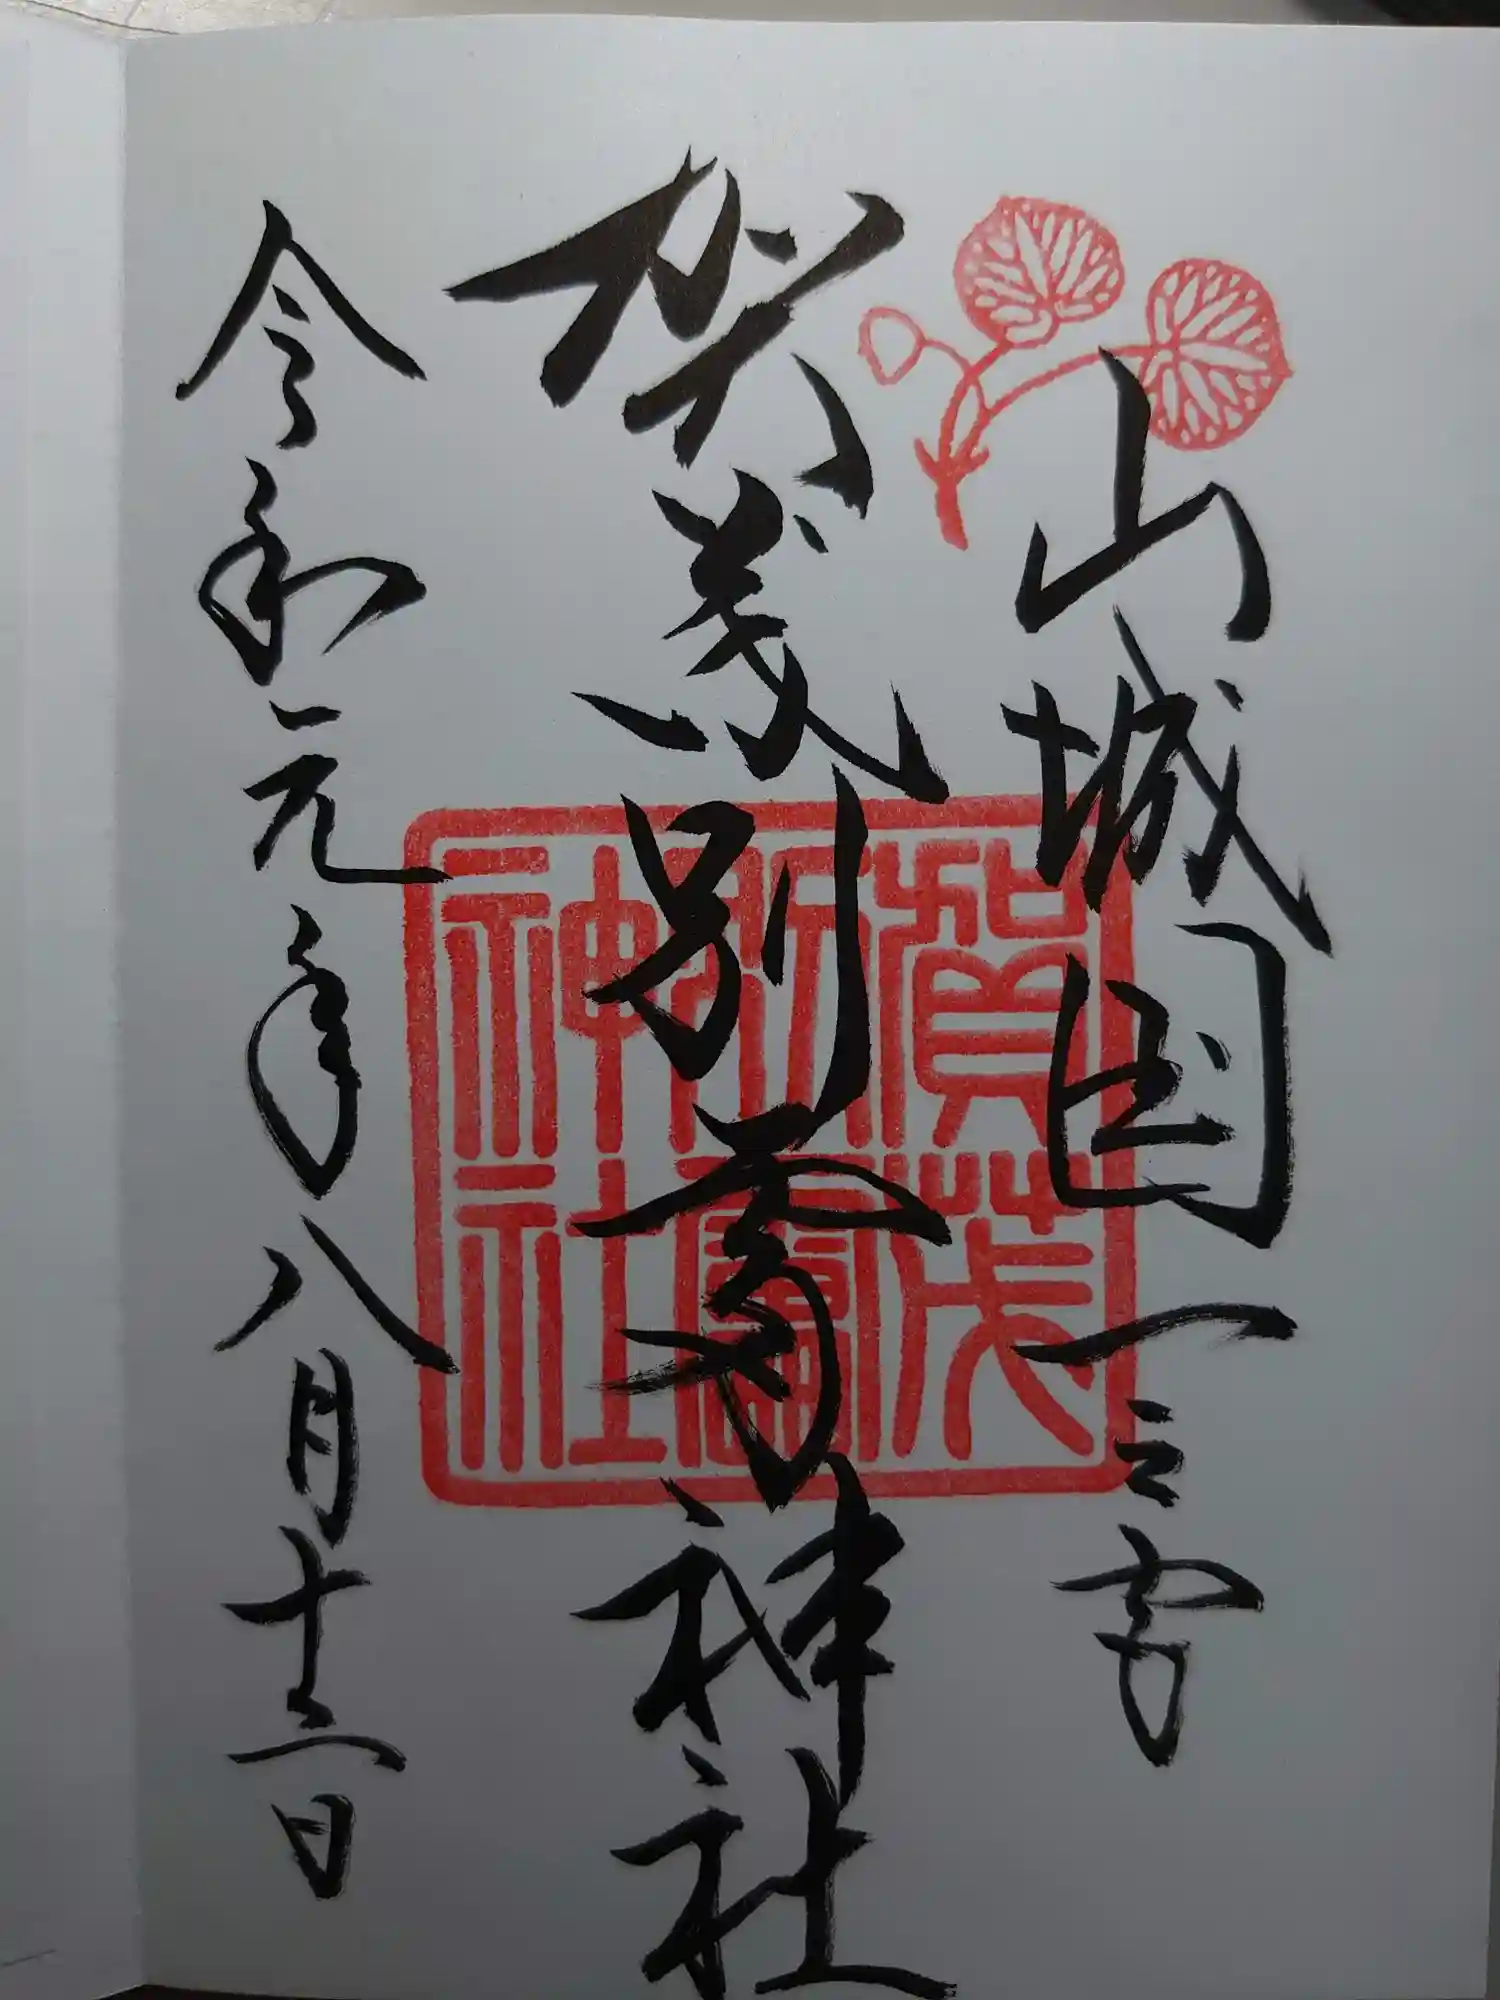 山城国一之宮
賀茂別雷神社
令和元年八月十三日
賀茂
別雷
神社